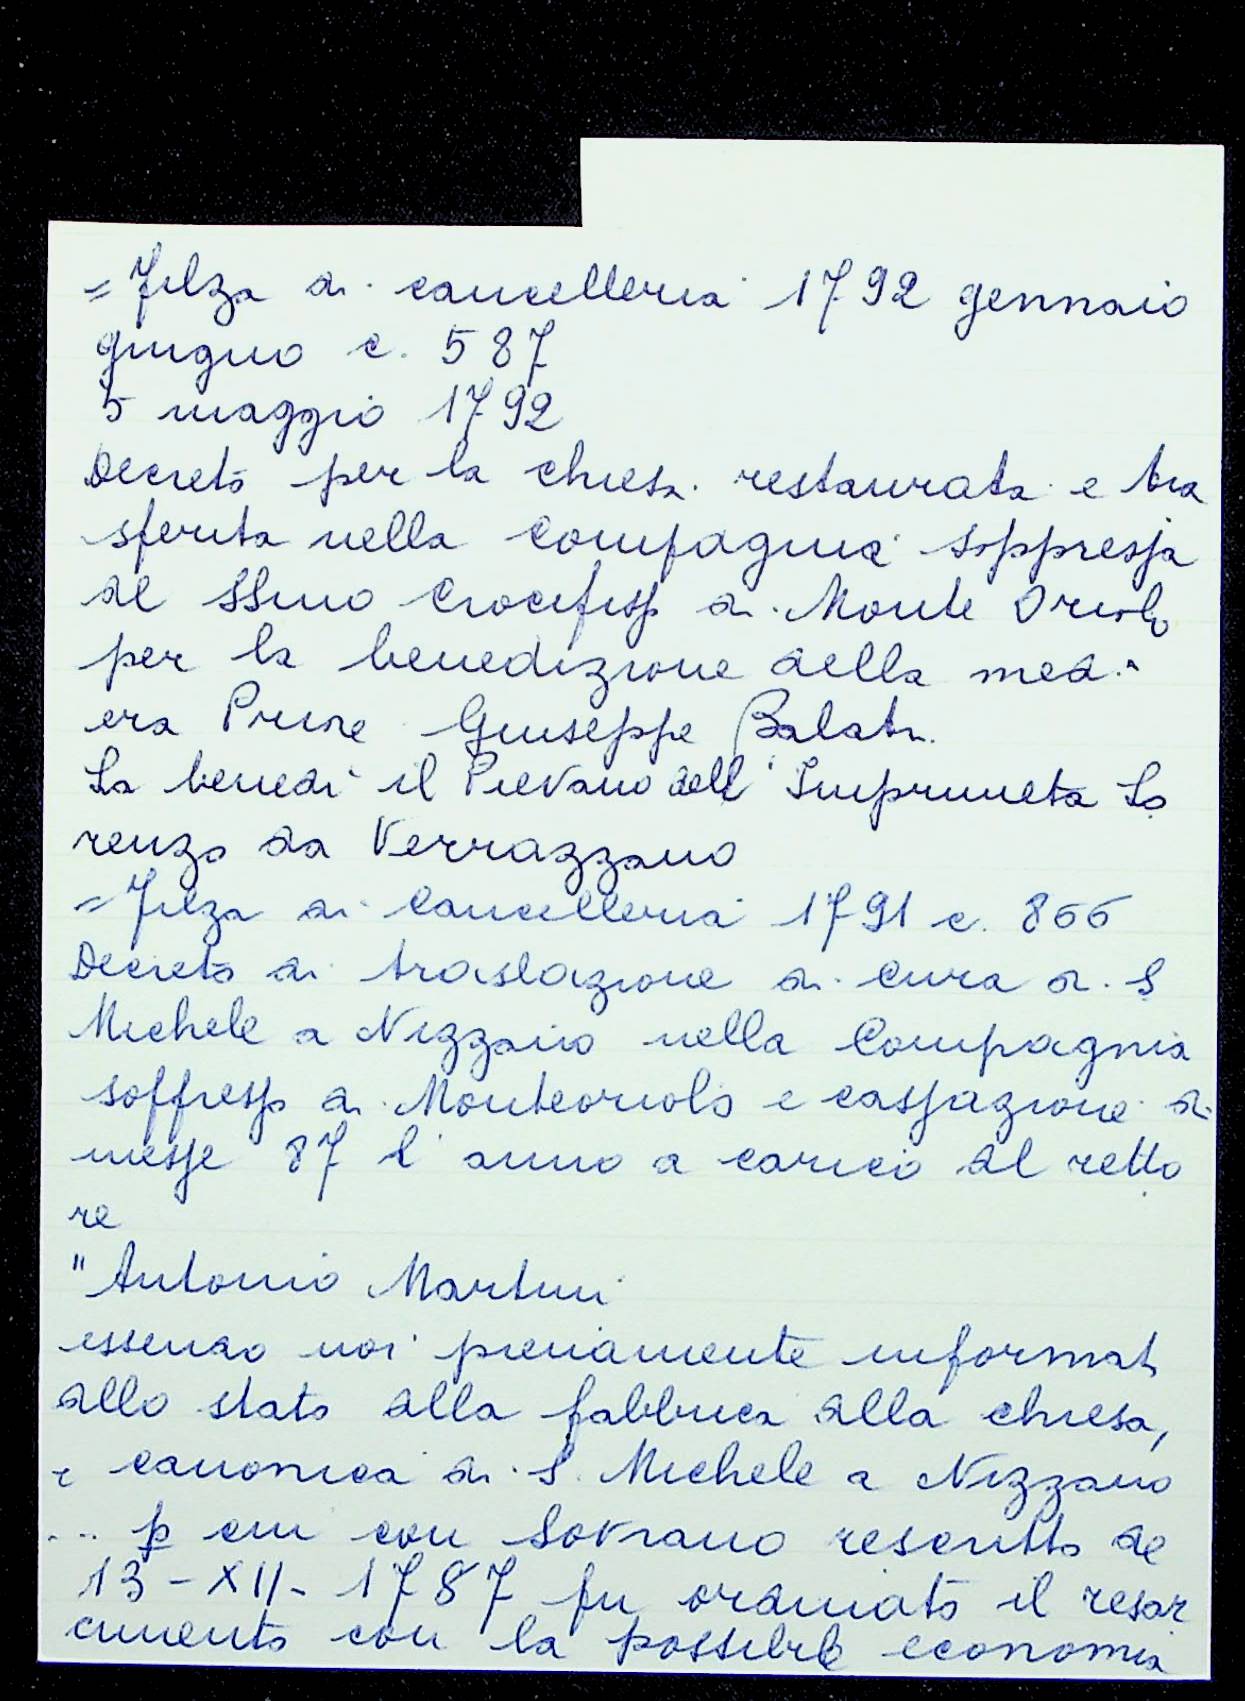 = Filza di cancelleria 1792 gennaio
giugno c. 587
5 maggio 1792
Decreto per la chiesa restaurata e tra
sferita nella Compagnia soppressa
del SSmo Crocifisso di Monte Oriolo
per la benedizione della med.a
era Priore Giuseppe Balatri
La benedì il Pievano dell'Impruneta Lo
renzo da Verrazzano
= Filza di Cancelleria 1791 c. 866
Decreto di traslazione di cura di S
Michele a Nizzano nella Compagnia
soppressa di Monteoriolo e cassazione di
messe 87 l'anno a carico del retto
re
"Antonio Martini
essendo noi pienamente informati
dello stato della fabbrica della chiesa,
e canonica di S. Michele a Nizzano
... p cui con Sovrano rescritto de
13-XII-1787 fu ordinato il resar
cimento con la possibile economia